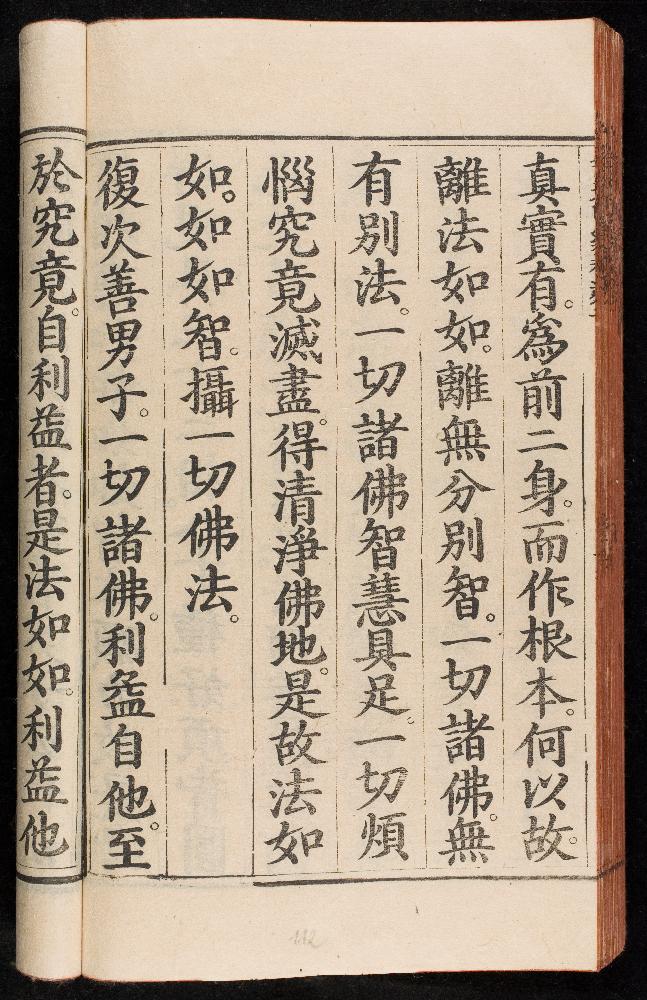 真實有。為前二身。而作根本。何以故。
離法如如。離無分別智。一切諸佛。無
有別法。一切諸佛智慧具足。一切煩
惱究竟滅盡。得清淨佛地。是故法如
如。如如智。攝一切佛法。
復次善男子。一切諸佛。利益自他。至
於究竟。自利益者。是法如如。利益他
112